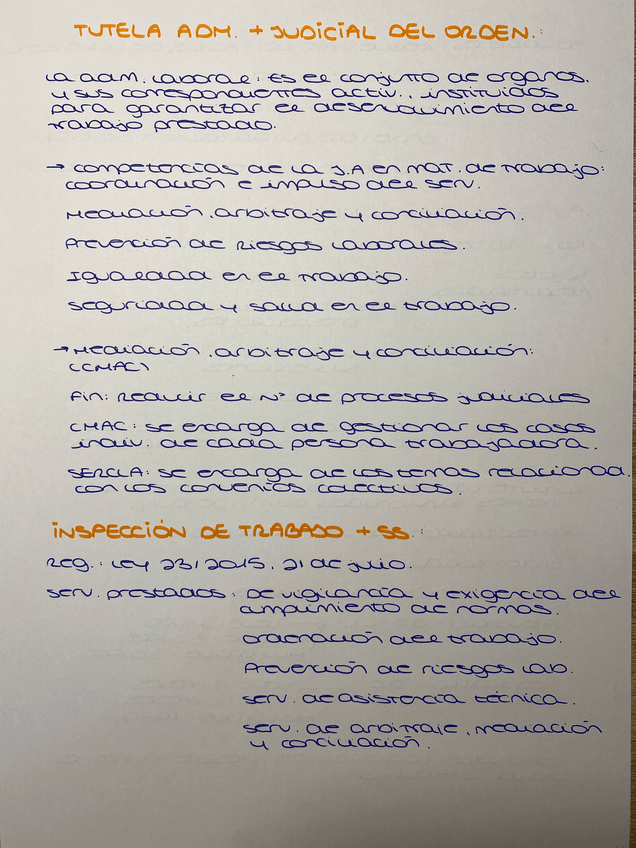 TUTELA ADM. + JUDICIAL DEL ORDEN.:
La adm. laboral: Es el conjunto de organos.
y sus correspondientes activ., instituidos
para garantizar el desenvolvimiento del
trabajo prestado.
→ competencias de la J.A en mat. de trabajo:
coordinación e impulso del serv.
Mediación, arbitraje y conciliación.
Prevención de Riesgos Laborales.
Igualdad en el trabajo.
Seguridad y salud en el trabajo.
→ Mediación, arbitraje y conciliación:
(CMAC)
Fin: Reducir el Nº de procesos judiciales
CMAC: se encarga de gestionar los casos
indiv. de cada persona trabajadora.
SERCLA: se encarga de los temas relaciona.
con los convenios colectivos.
INSPECCIÓN DE TRABAJO + SS.:
Reg.: Ley 23/2015, 21 de julio.
Serv. prestados: De vigilancia y exigencia del
cumplimiento de normas.
Ordenación del trabajo.
Prevención de riesgos lab.
Serv. de asistencia técnica.
Serv. de arbitraje, mediación
y conciliación.